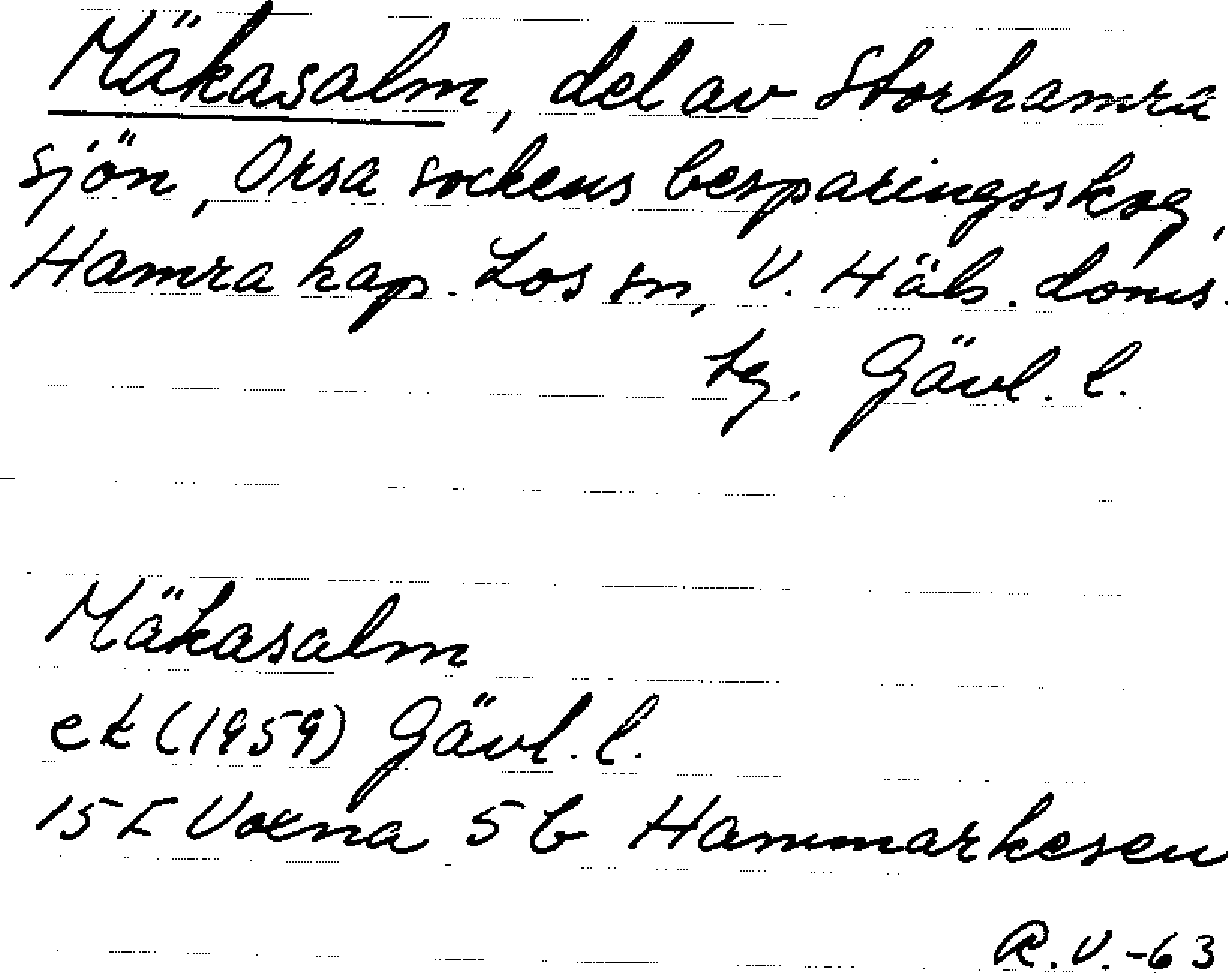 Mäkasalm, del av Storhamra
sjön, Orsa sockens besparingsskog,
Hamra kap. Los sn, V. Häls. doms.
tg. Gävl. l.
Mäkasalm
ek (1959) Gävl. l.
15 F Voxna 5 b Hammarkesen
R.V.-63